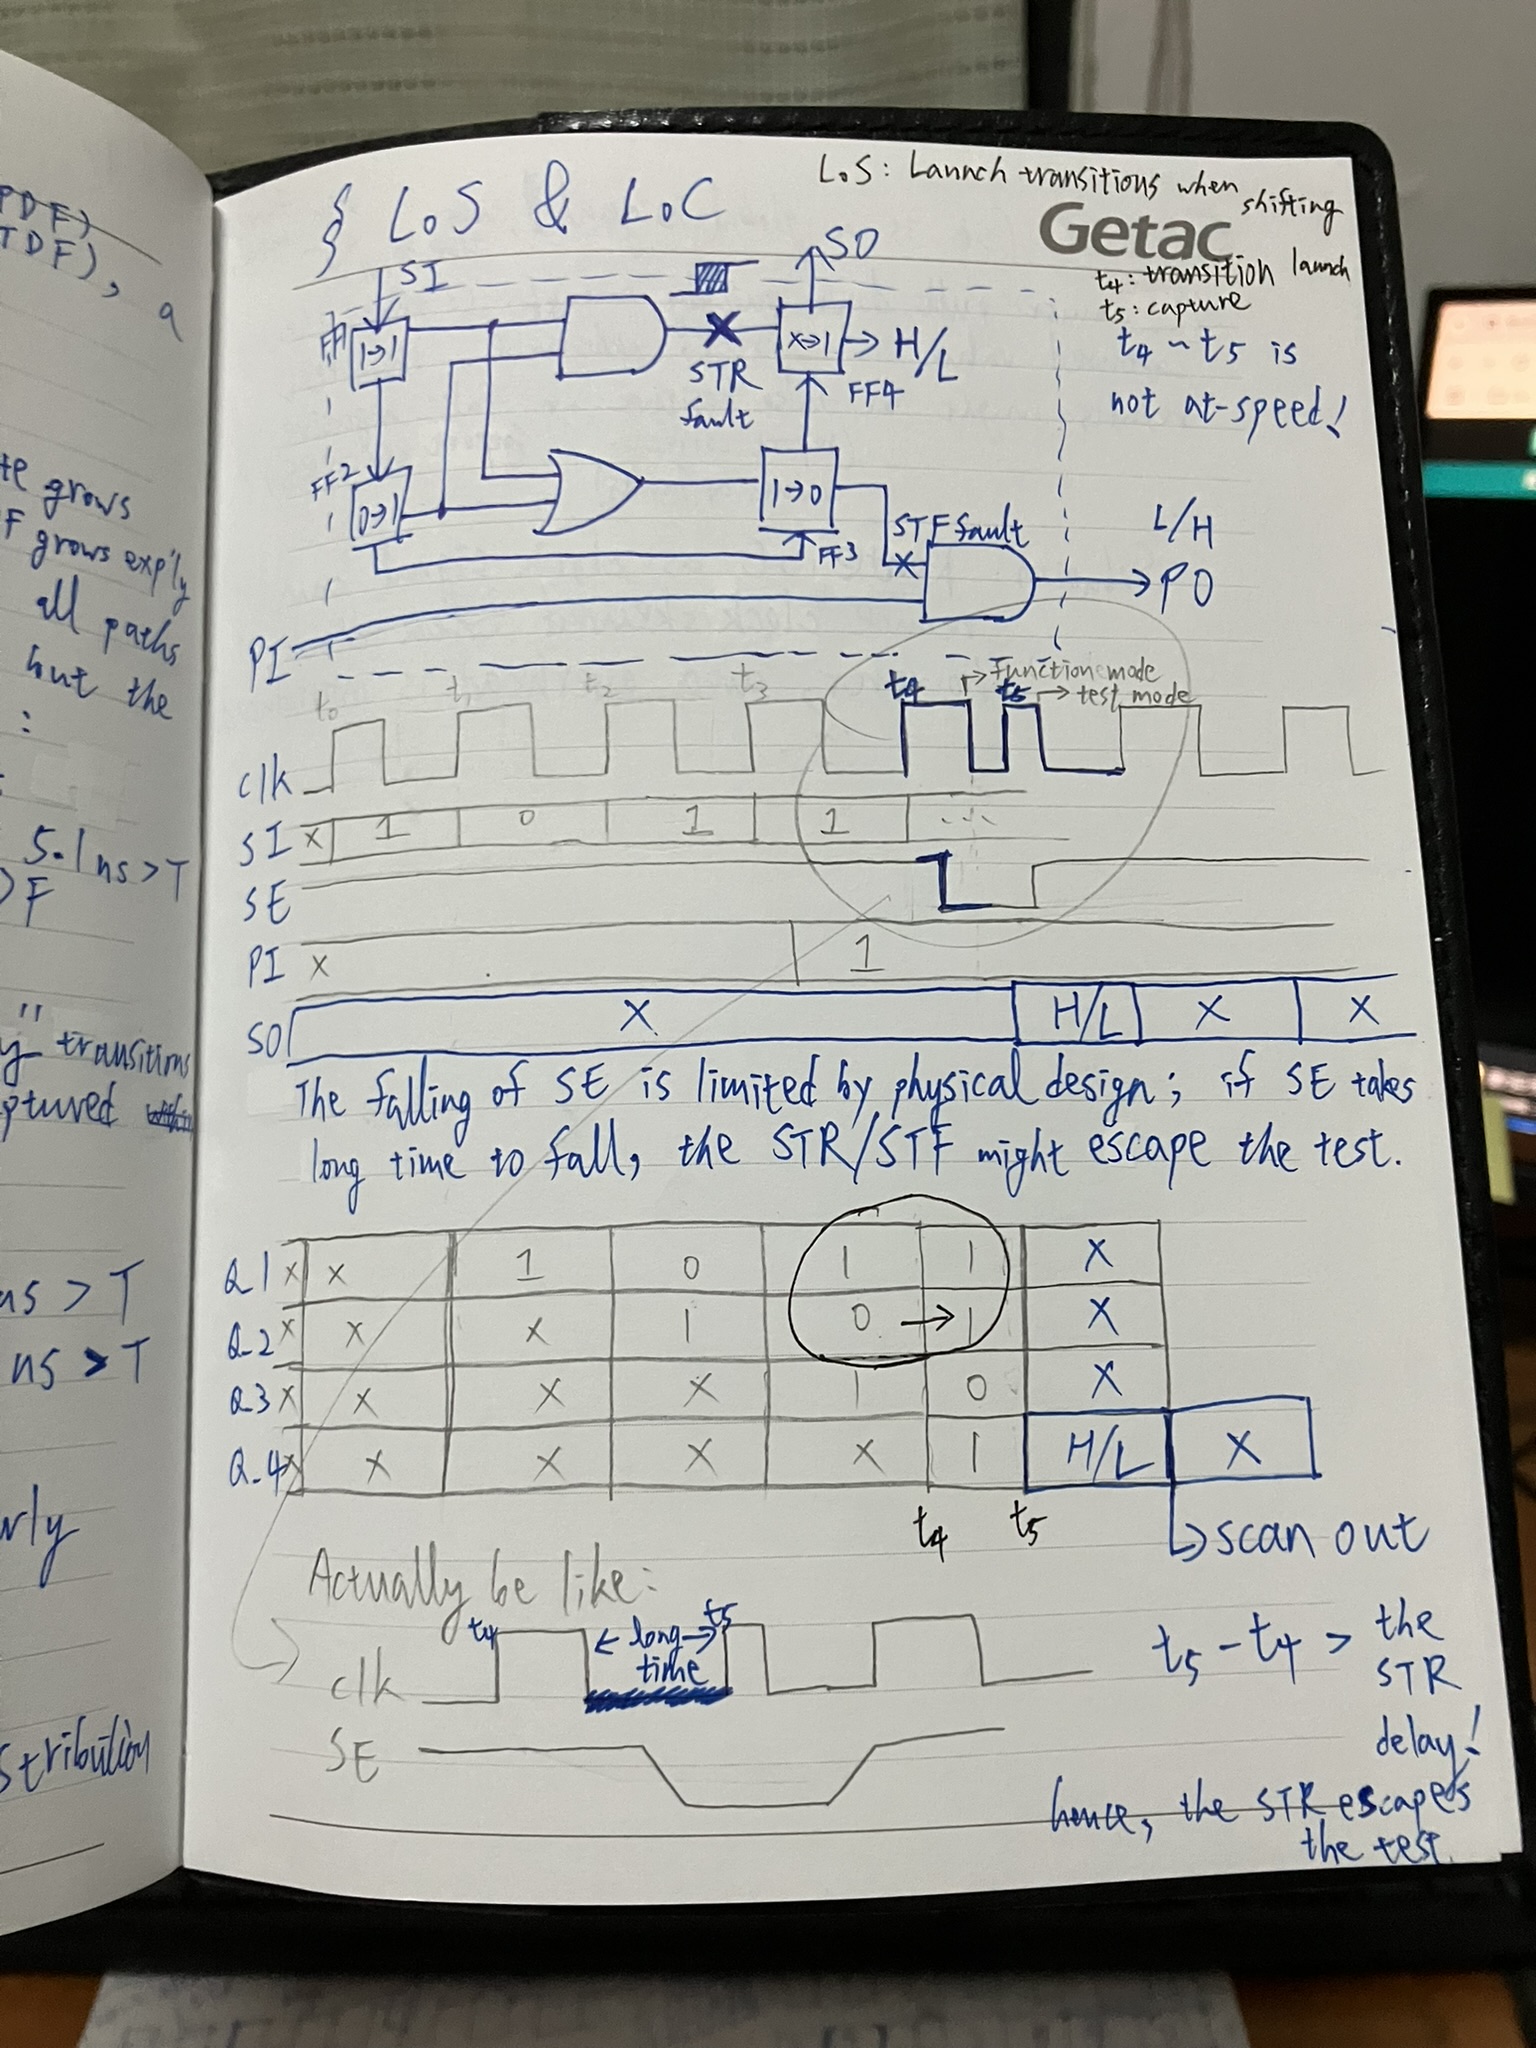 PDF)
TDF), a
te grows
F grows exp'ly
all paths
but the
:
5.1ns>T
>F
"
y transitions
ptured
ns > T
ns > T
rly
stribution
§ LoS & LoC
LoS: Launch transitions when
shifting
Getac
t4: transition launch
t5: capture
t4 ~ t5 is
not at-speed!
SI
SO
1→1
X→1
H/L
STR
fault
FF4
FF2
0→1
1→0
FF3
STF fault
L/H
PO
PI
t0 t1 t2 t3 t4 t5
→ Function mode
→ test mode
clk
SI X 1 0 1 1 ...
SE
PI X 1
SO X H/L X X
The falling of SE is limited by physical design; if SE takes
long time to fall, the STR/STF might escape the test.
Q1 X X 1 0 1 1 X
Q2 X X X 1 0 → 1 X
Q3 X X X X 1 0 X
Q4 X X X X X 1 H/L X
t4 t5
→ scan out
Actually be like:
t4 ← long → t5
time
clk
SE
t5 - t4 > the
STR
delay!
hence, the STR escapes
the test.